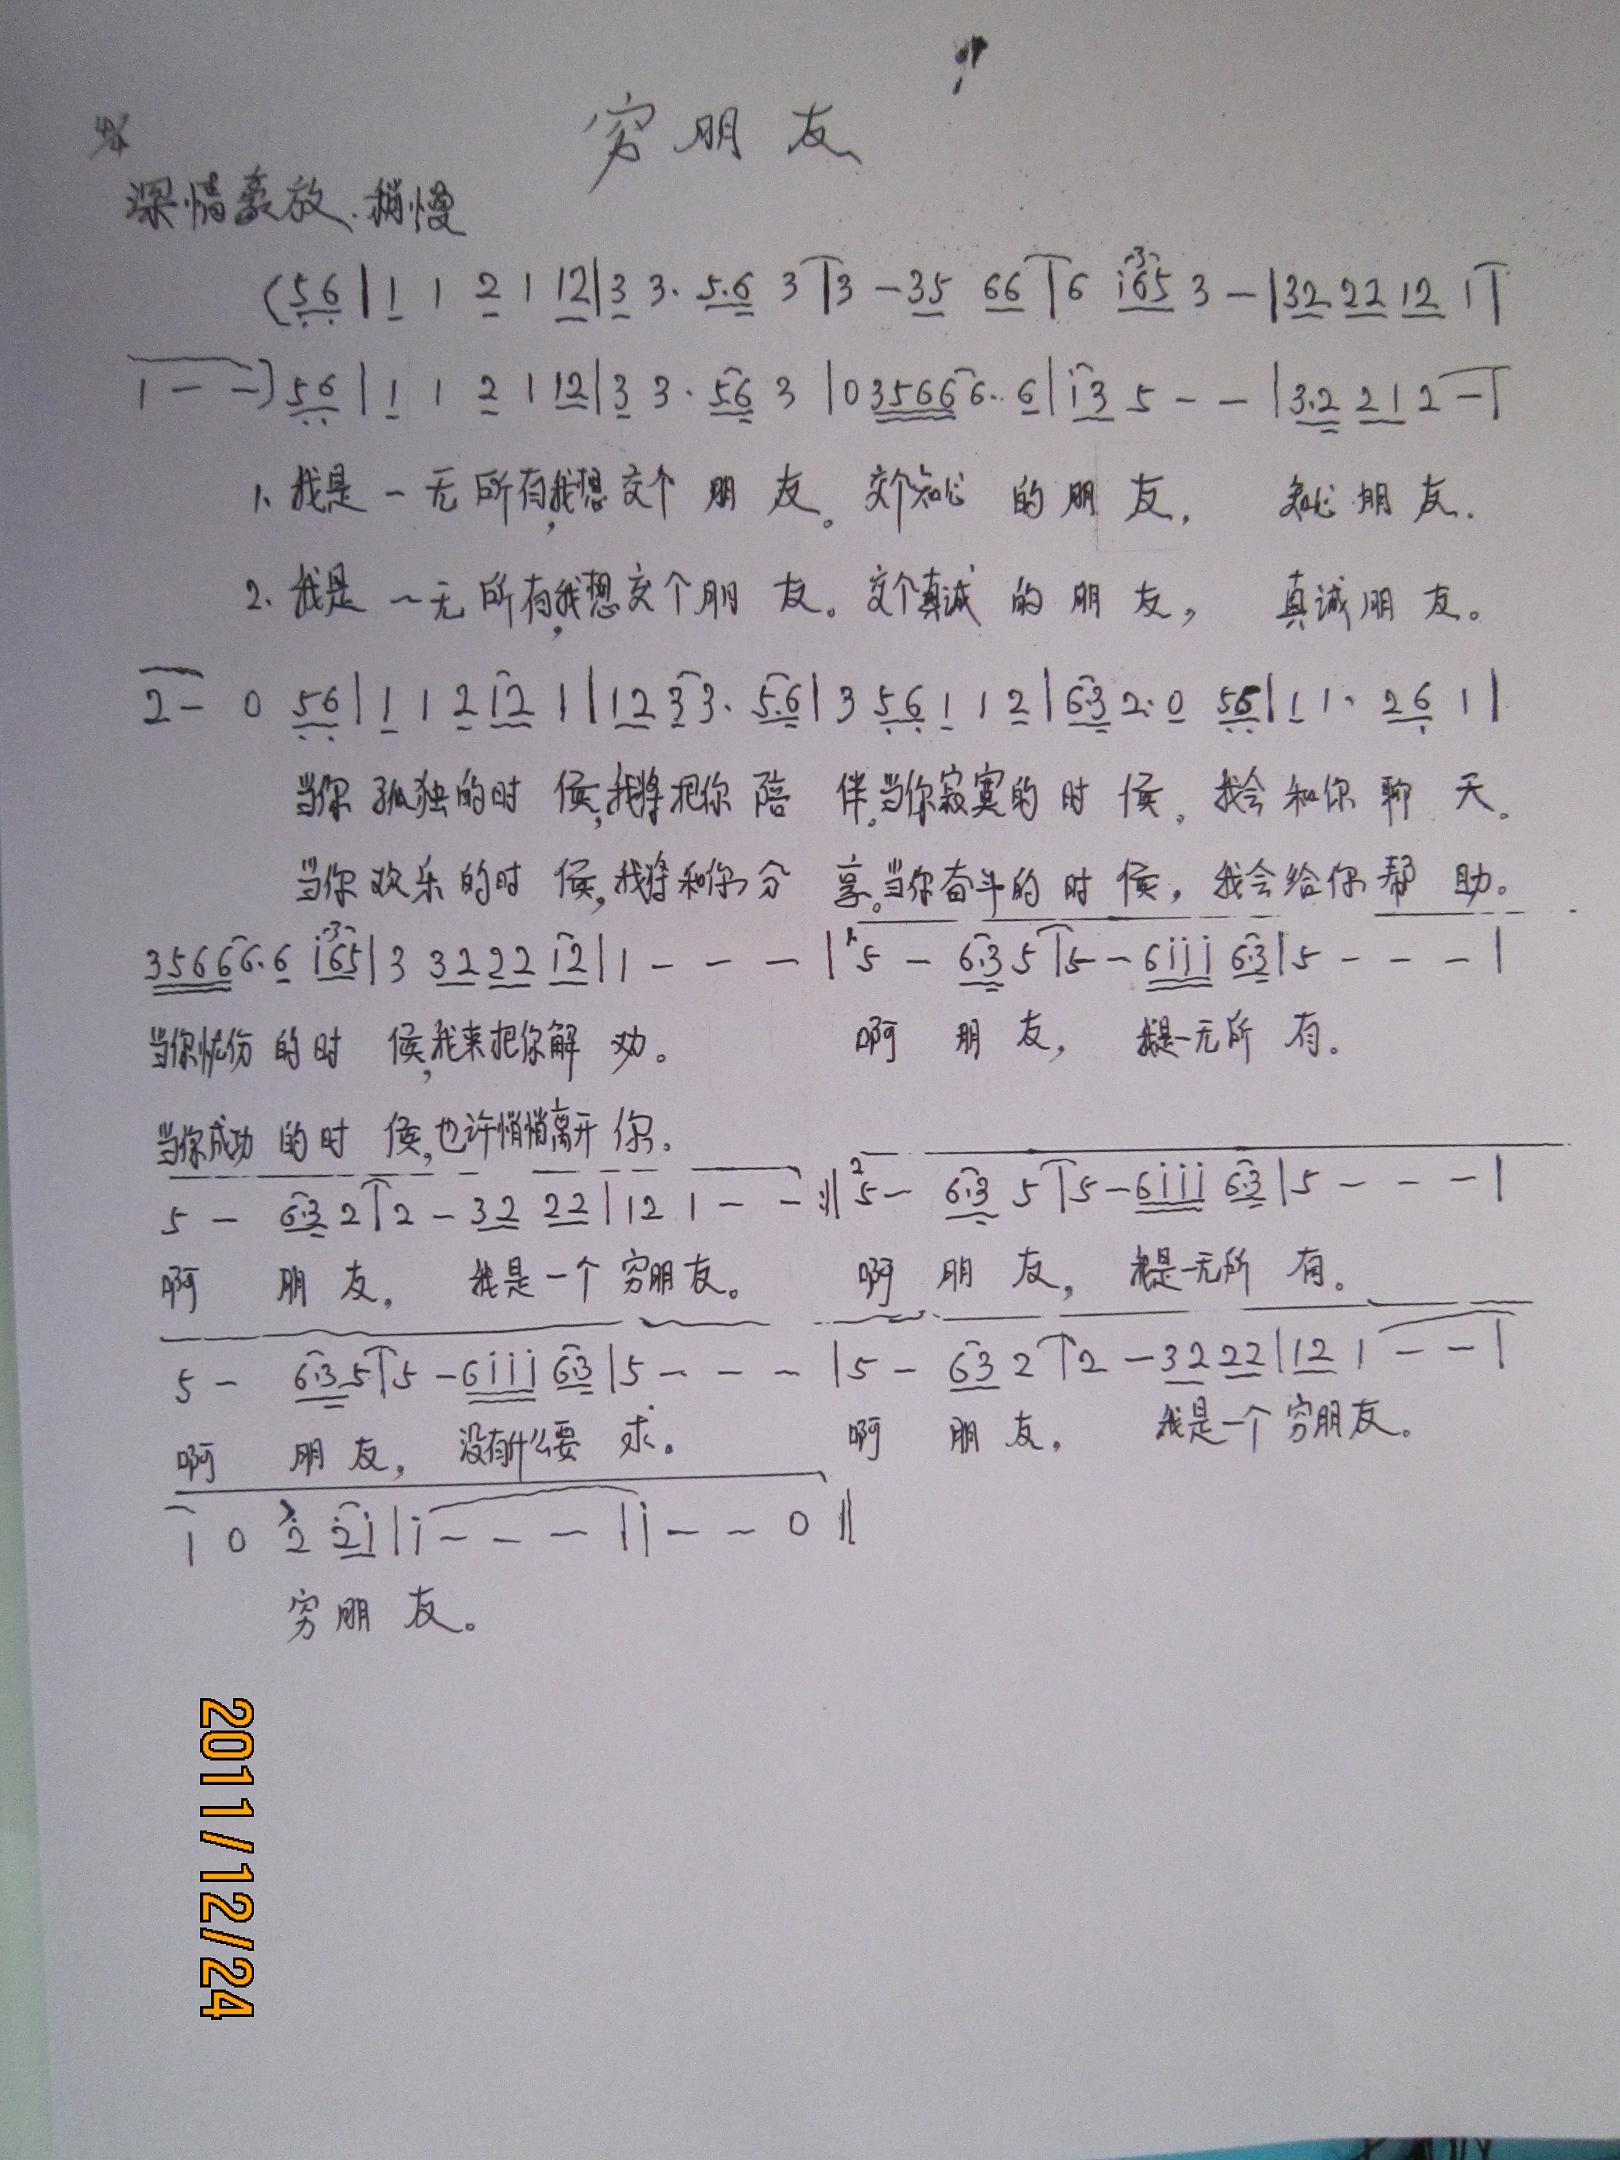 穷朋友
4/4
深情豪放、稍慢
(56|1 1 2 1 12|3 3. 5.6 3|3 - 35 66|6 i65 3 - |32 22 12 1|
1 - -) 56|1 1 2 1 12|3 3. 56 3|0 35666.. 6|i3 5 - - |3.2 21 2 -|
1. 我是一无所有,我想交个朋友。交个知心的朋友, 知心朋友.
2. 我是一无所有,我想交个朋友。交个真诚的朋友, 真诚朋友。
2 - 0 56|1 1 2 12 1|12 33. 5.6|3 56 1 1 2|6.3 2. 0 56|1 1. 26 1|
当你孤独的时候,我将把你陪伴。当你寂寞的时候,我会和你聊天。
当你欢乐的时候,我将和你分享。当你奋斗的时候,我会给你帮助。
35666.6 i65|3 32 22 12|1 - - - |1. 5 - 6.3 5|5 - 6iii 6.3|5 - - - |
当你忧伤的时候,我来把你解劝。 啊朋友, 我是一无所有。
当你成功的时候,也许悄悄离开你。
5 - 6.3 2|2 - 32 22|12 1 - - :|| 2 5 - 6.3 5|5 - 6iii 6.3|5 - - - |
啊朋友, 我是一个穷朋友。 啊朋友, 我是一无所有。
5 - 6.3 5|5 - 6iii 6.3|5 - - - |5 - 63 2|2 - 32 22|12 1 - - |
啊朋友, 没有什么要求。 啊朋友, 我是一个穷朋友。
1 0 2 2i|i - - - |i - - 0 ||
穷朋友。
2011/12/24